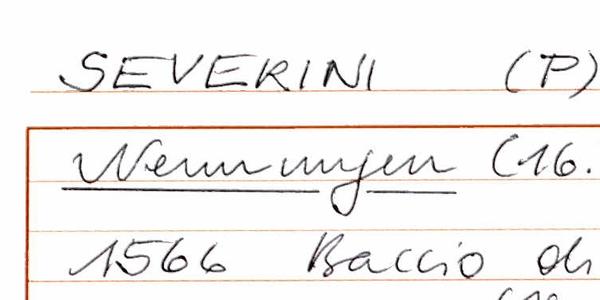 SEVERINI (P)
Nennungen (16.
1566 Baccio di